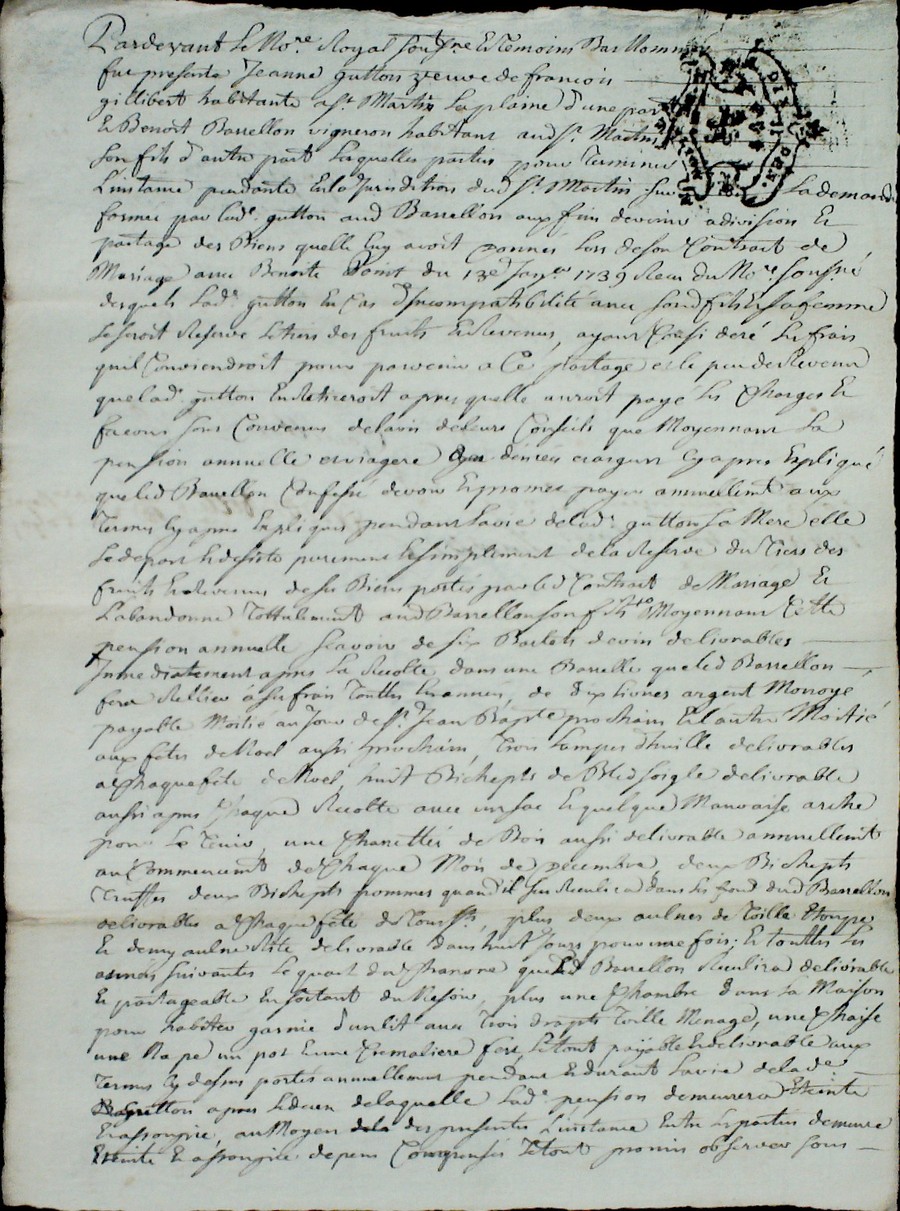 Pardevant Le No.re Royal sous.ne & Temoins Bas Nommés
fut presente Jeanne gutton veuve de francois
gillibert habitante a St Martin Laplaine d'une part
Et Benoit Barrellon vigneron habitant aud St. Martin
son fils d'autre part Lesquelles parties pour Terminer
L'instance pendante En la Jurisdiction dud St Martin sur La demande
formée par lad.e gutton aud Barrellon aux fins de venir a division Et
partage des Biens quelle luy avoit Donnés lors de son Contract de
Mariage avec Benoite du 13e Janv.er 1739 Receu du No.re soussné
desquels Lad.e gutton En Cas d'Incompatibilité avec sond fils Et sa femme
se seroit Reservé Le tiers des fruits Et Revenus, ayant Consideré Les frais
quil Conviendroit pour parvenir a Ce partage et le peu de Revenu
que lad.e gutton En Retireroit apres quelle auroit payé Les Charges Et
facons sont Convenus de lavis de leurs Conseils que Moyennant La
pension annuelle et viagere Cy apres Expliqué
que led Barrellon Confesse devoir Et promet payer annuellemt aux
Termes Cy apres Expliqués pendant la vie de lad.e gutton sa Mere elle
se depart & desiste purement Et simplement de la Reserve du Tiers des
fruits Et Revenus de ses Biens portés par led Contract de Mariage Et
Labandonne Tottalement aud Barrellon son fils Moyennant Cette
pension annuelle scavoir de six Barrals de vin delivrables
Immediatement apres La Recolte dans une Barrelle que led Barrellon
fera Relier a ses frais Touttes Les années, de dix livres argent Monoyé
payable Moitié au Jour de St. Jean Bapte prochain Et Lautre Moitié
aux fetes de Noel aussi prochain, Trois Lampes d'huille delivrables
a Chaque fete de Noel, huit Bichepts de Bled soigle delivrable
aussi apres Chaque Recolte avec un sac Et quelque Mauvaise arche
pour Le Tenir, une Charettée de Bois aussi delivrable annuellemt
au Commencemt de Chaque Mois de Decembre, deux Bichepts
Truffes deux Bichepts pommes quand il sen Recullira dans les fond dud Barrellon
delivrables a Chaque fête de Touss.ts, plus deux aulnes de Toille Etoupe
Et demy aulne Rite delivrable dans huit Jours pour une fois; Et touttes Les
années suivantes Le quart du Chanvre que led Barrellon Recullira delivrable
Et partageable En sortant du Nesoir, plus une Chambre dans la Maison
pour habiter garnie d'un lit avec Trois draps Toille Menage, une Chaise
une Rape un pot Et une Cremaliere fert, Le tout payable Et delivrable aux
Termes Cy dessus portés annuellement pendant Et durant La vie de lade
gutton apres Le deces de laquelle Lad.e pension demeurera Eteinte
Et assoupie, au Moyen des presentes L'instance Entre Les parties demeure
Eteinte Et assoupie depens Compensés Le tout promis observer sous